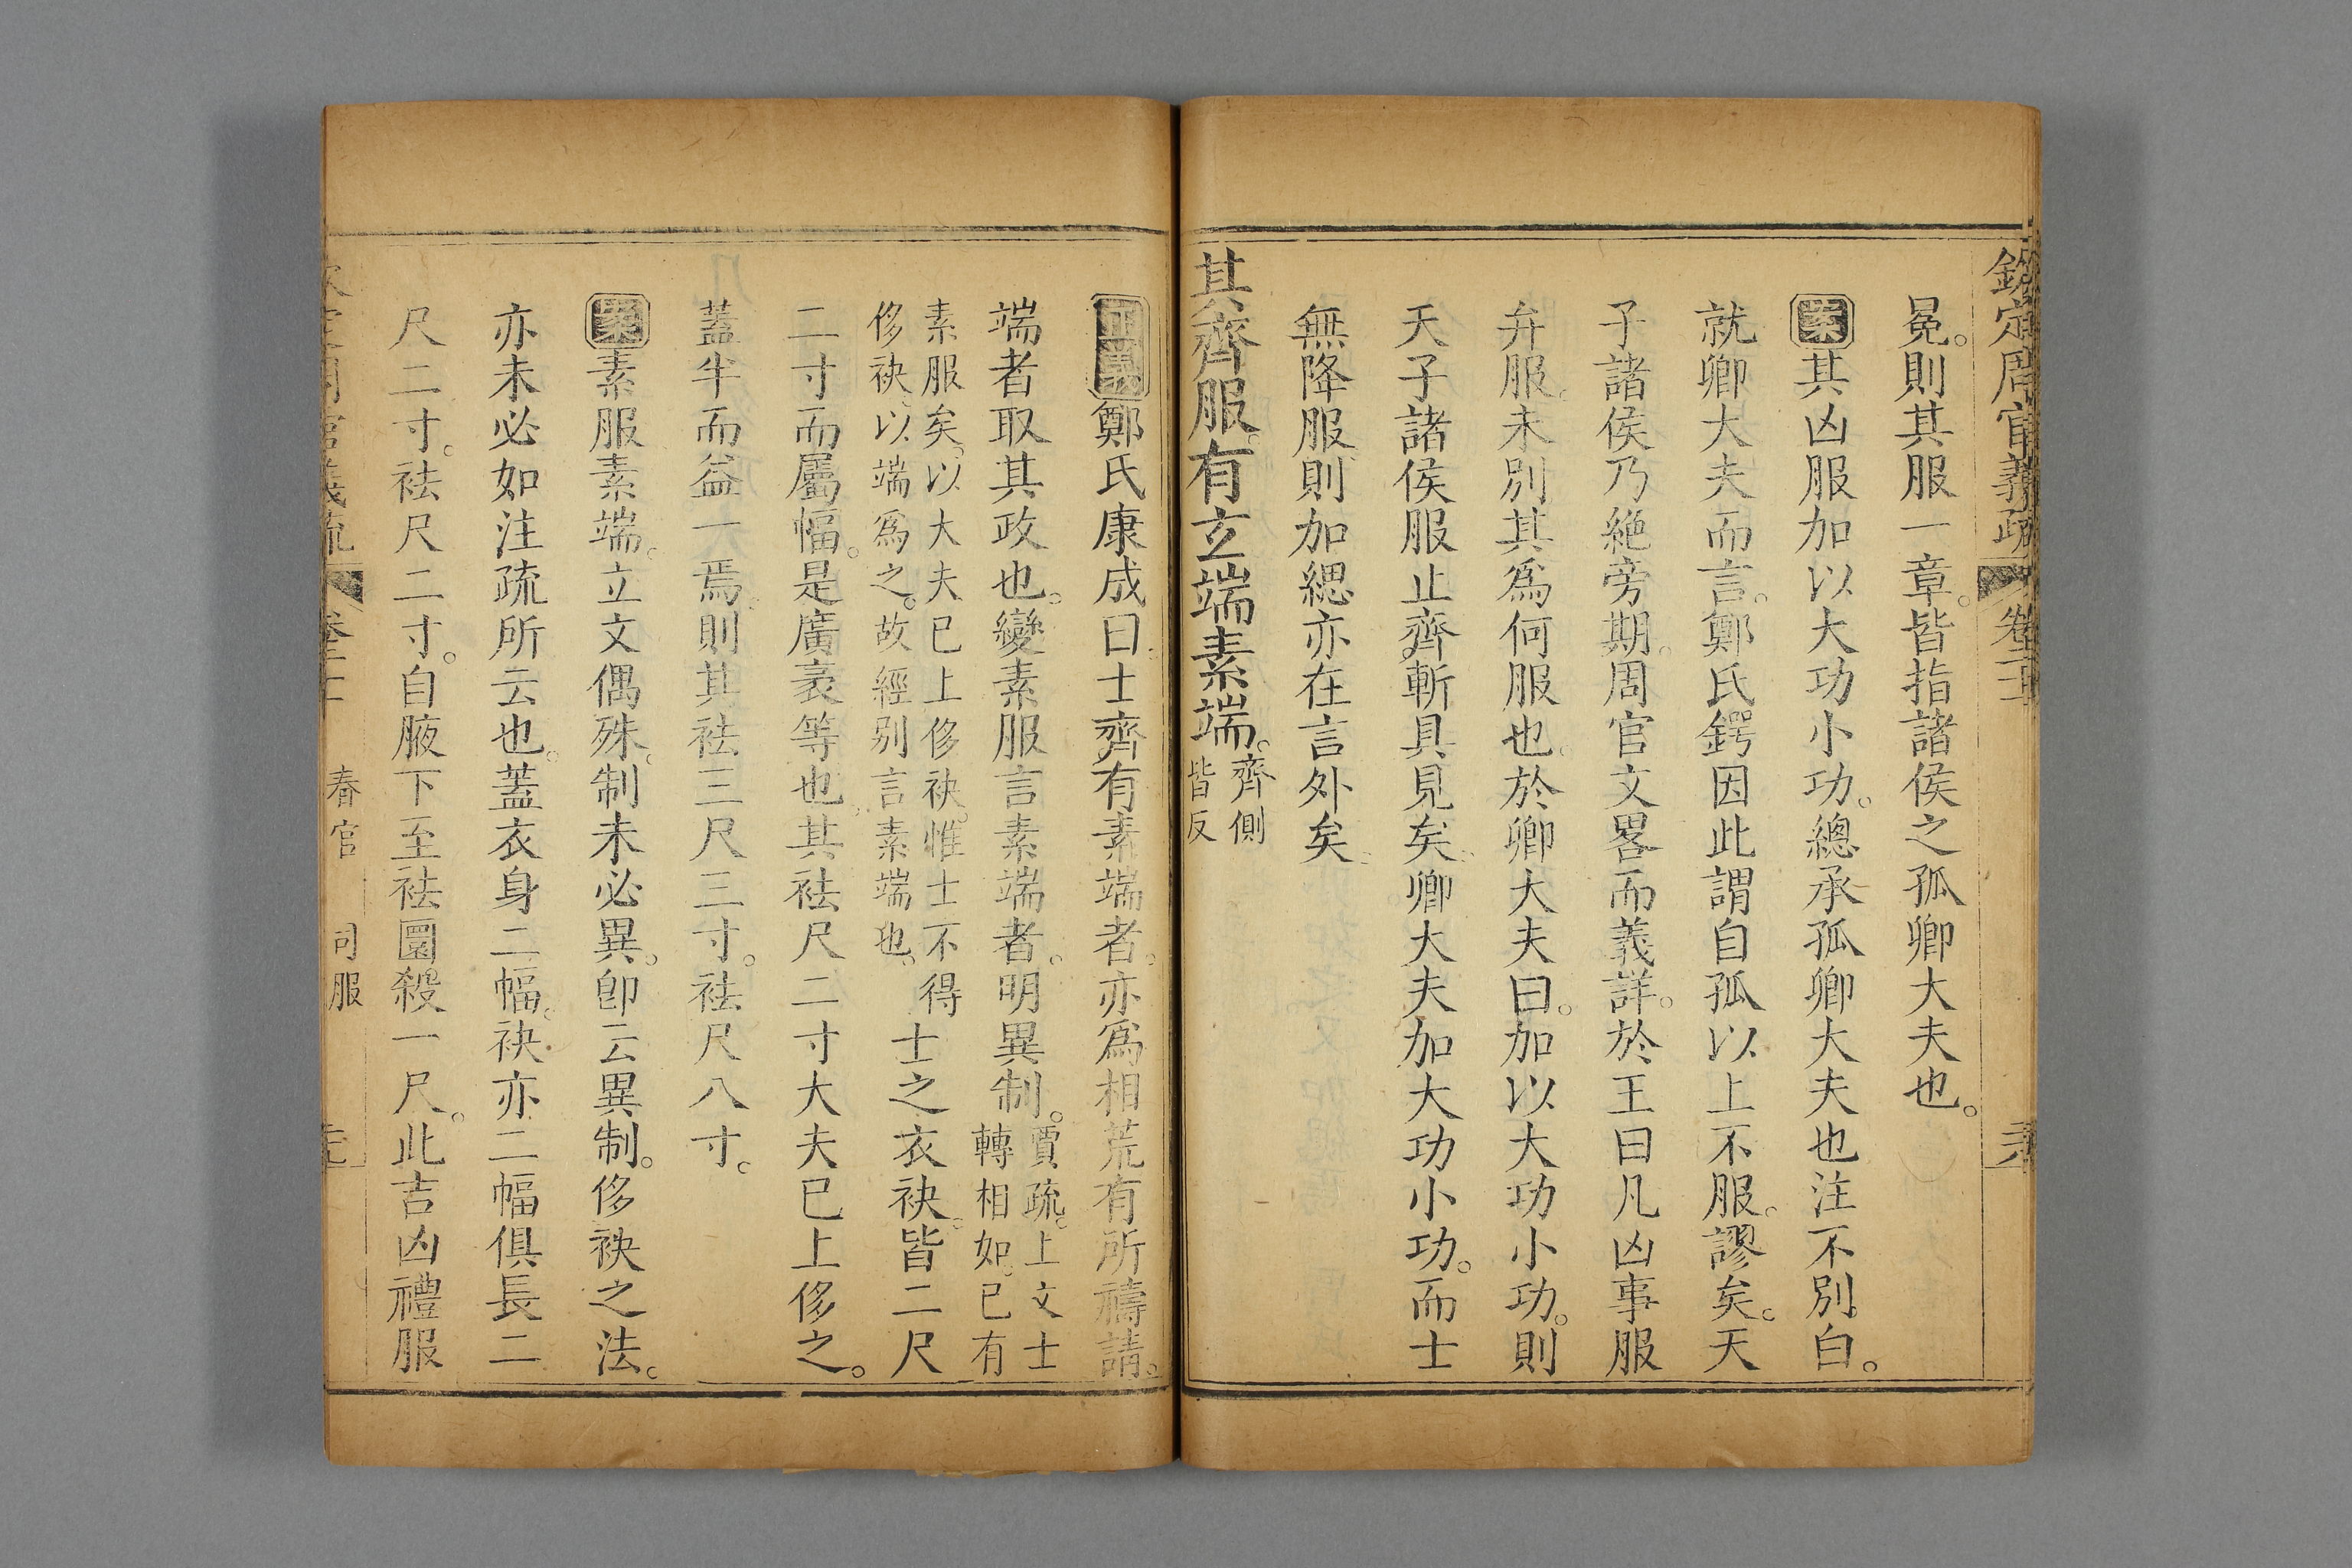 欽定周官義疏 卷二十一
冕。則其服一章。皆指諸侯之孤卿大夫也。
案其凶服加以大功小功。總承孤卿大夫也注不別白。
就卿大夫而言。鄭氏鍔因此謂自孤以上不服。謬矣。天
子諸侯乃絶旁期。周官文畧而義詳。於王曰凡凶事服
弁服。未別其爲何服也。於卿大夫曰。加以大功小功。則
天子諸侯服止齊斬具見矣。卿大夫加大功小功。而士
無降服則加緦亦在言外矣。
其齊服。有玄端素端。齊側
皆反
正義鄭氏康成曰。士齊有素端者。亦爲相荒有所禱請。
端者取其政也。變素服言素端者。明異制。賈疏。上文士
轉相如。已有
素服矣。以大夫已上侈袂。惟士不得
侈袂。以端爲之。故經別言素端也。士之衣袂。皆二尺
二寸而屬幅。是廣袤等也。其袪尺二寸大夫已上侈之。
蓋半而益一焉。則其袪三尺三寸。袪尺八寸。
案素服素端。立文偶殊。制未必異。卽云異制。侈袂之法。
亦未必如注疏所云也。蓋衣身二幅。袂亦二幅俱長二
尺二寸。袪尺二寸。自腋下至袪圜殺一尺。此吉凶禮服
春官 司服